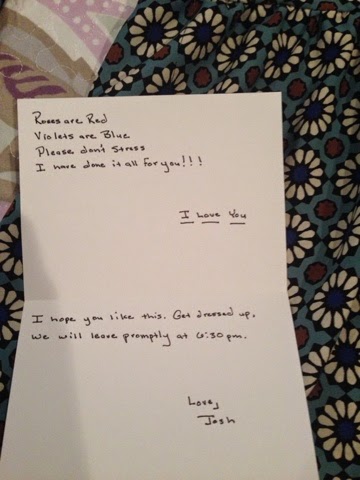 Roses are Red
Violets are Blue
Please don't stress
I have done it all for you!!!
I Love You
I hope you like this. Get dressed up.
We will leave promptly at 6:30 pm.
Love,
Josh